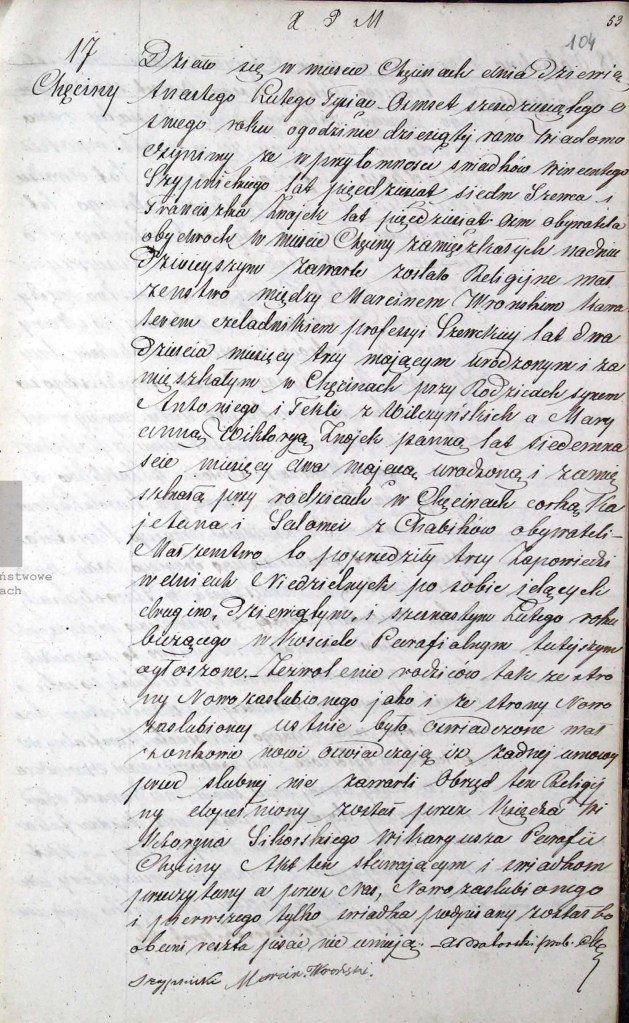 X P M
53
104
17
Chęciny
Działo się w mieście Chęcinach dnia dziewię
tnastego Lutego Tysiąc Ośmset sześćdziesiątego ó
smego roku o godzinie dziesiątéj rano Wiadomo
czynimy że w przytomności świadków Wincentego
Szypnickiego lat pięćdziesiąt siedm Szewca i
Franciszka Znojek lat pięćdziesiąt ośm obywatela
obydwóch w mieście Chęciny zamięszkałych na dniu
dzisiejszym zawarte zostało Religijne mał
żeństwo między Marcinem Wrońskim kawa
lerem czeladnikiem professyi Szewckiej lat dwa
dzieścia miesięcy trzy mającym urodzonym i za
mięszkałym w Chęcinach przy Rodzicach synem
Antoniego i Tekli z Wilczyńskich a Mary
anną Wiktoryą Znojek panną lat siedemna
ście miesięcy dwa mającą urodzoną i zamię
szkałą przy rodzicach w Chęcinach córką Ka
jetana i Salomei z Chabików obywateli –
Małżeństwo to poprzedziły trzy Zapowiedzi
w dniach Niedzielnych po sobie idących
drugim, dziewiątym, i szesnastym Lutego roku
bieżącego w Kościele Parafialnym tutejszym
ogłoszone. – Zezwolenie rodziców tak ze stro
ny Nowozaślubionego jako i ze strony Nowo
zaślubionej ustnie było oświadczone mał
żonkowie nowi oświadczają iż żadnej umowy
przed ślubnej nie zawarli Obrzęd ten Religij
ny dopełniony został przez Księdza Wi
ktoryna Sikorskiego Wikaryusza Parafii
Chęciny Akt ten stawającym i świadkom
przeczytany a przez Nas, Nowozaślubionego
i pierwszego tylko świadka podpisany został bo
obecni reszta pisać nie umieją. –
Szypnicki Marcin Wroński.